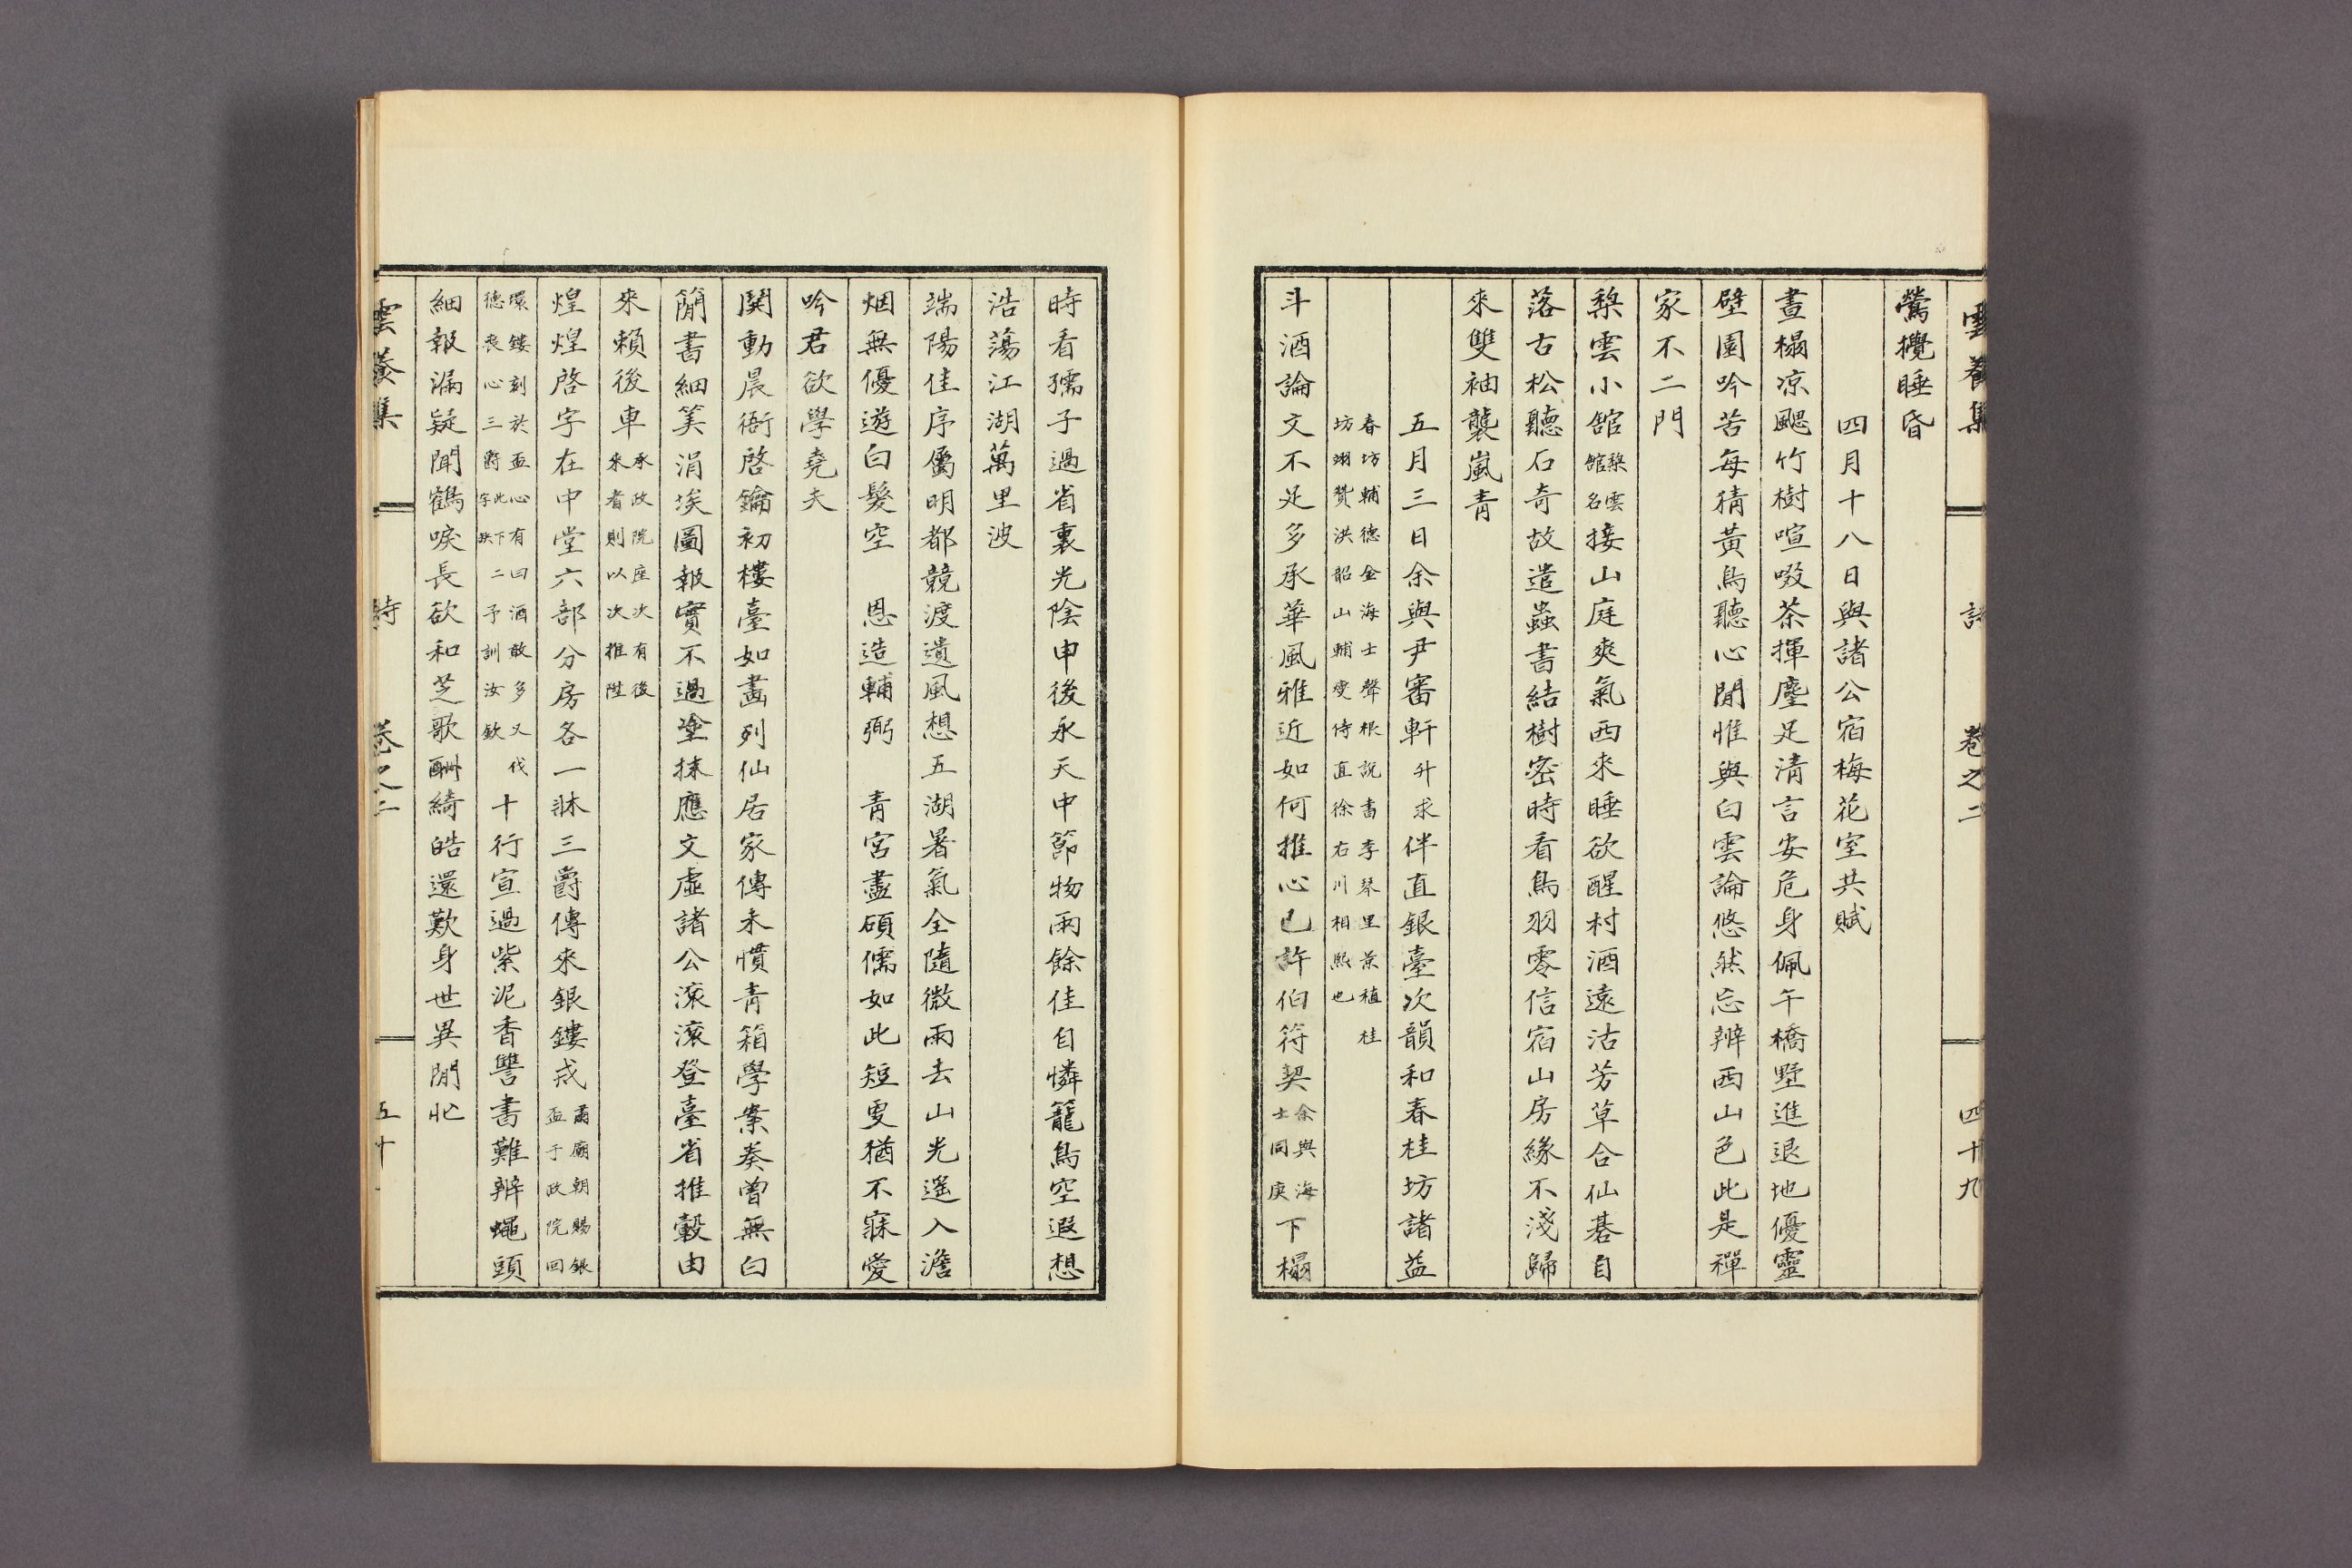 雲養集 詩 卷之二 四十九
鶯攪睡昏
四月十八日與諸公宿梅花室共賦
晝榻凉颸竹樹喧啜茶揮麈足清言安危身佩午橋墅進退地優靈
壁園吟苦每猜黃鳥聽心閒惟與白雲論悠然忘辨西山色此是禪
家不二門
梨雲小舘梨雲舘名接山庭爽氣西來睡欲醒村酒遠沽芳草合仙碁自
落古松聽石奇故遣蟲書結樹密時看鳥羽零信宿山房緣不淺歸
來雙袖襲嵐靑
五月三日余與尹審軒升求伴直銀臺次韻和春桂坊諸益
春坊輔德金海士聲根說書李琴里景稙桂
坊翊贊洪韶山輔燮侍直徐右川相熙也
斗酒論文不足多承華風雅近如何推心已許伯符契余與海士同庚下榻
時看孺子過省裏光陰申後永天中節物雨餘佳自憐籠鳥空遐想
浩蕩江湖萬里波
端陽佳序屬明都競渡遺風想五湖暑氣全隨微雨去山光遙入澹
烟無優遊白髮空 恩造輔弼 靑宮盡碩儒如此短更猶不寐愛
吟君欲學堯夫
闃動晨衙啓鑰初樓臺如畵列仙居家傳未慣靑箱學案奏曾無白
簡書細筭涓埃圖報實不過塗抹應文虛諸公滾滾登臺省推轂由
來賴後車承政院座次有後來者則以次推陞
煌煌啓字在中堂六部分房各一牀三爵傳來銀鏤戒肅廟朝賜銀盃于政院回
環鏤刻於盃心有曰酒敢多又伐德喪心三爵此下二字缺予訓汝欽十行宣過紫泥香讐書難辨蠅頭
細報漏疑聞鶴唳長欲和芝歌酬綺皓還歎身世異閒忙
雲養集 詩 卷之二 五十